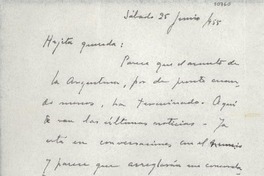 Sábado 25 Junio/55
Hijita querida:
Parece que el asunto de
la Argentina, por de pronto cuan-
do menos, ha terminado. Aquí
te van das últimas noticias - Ya
está en conversaciones con el
y parece que arreglarán un